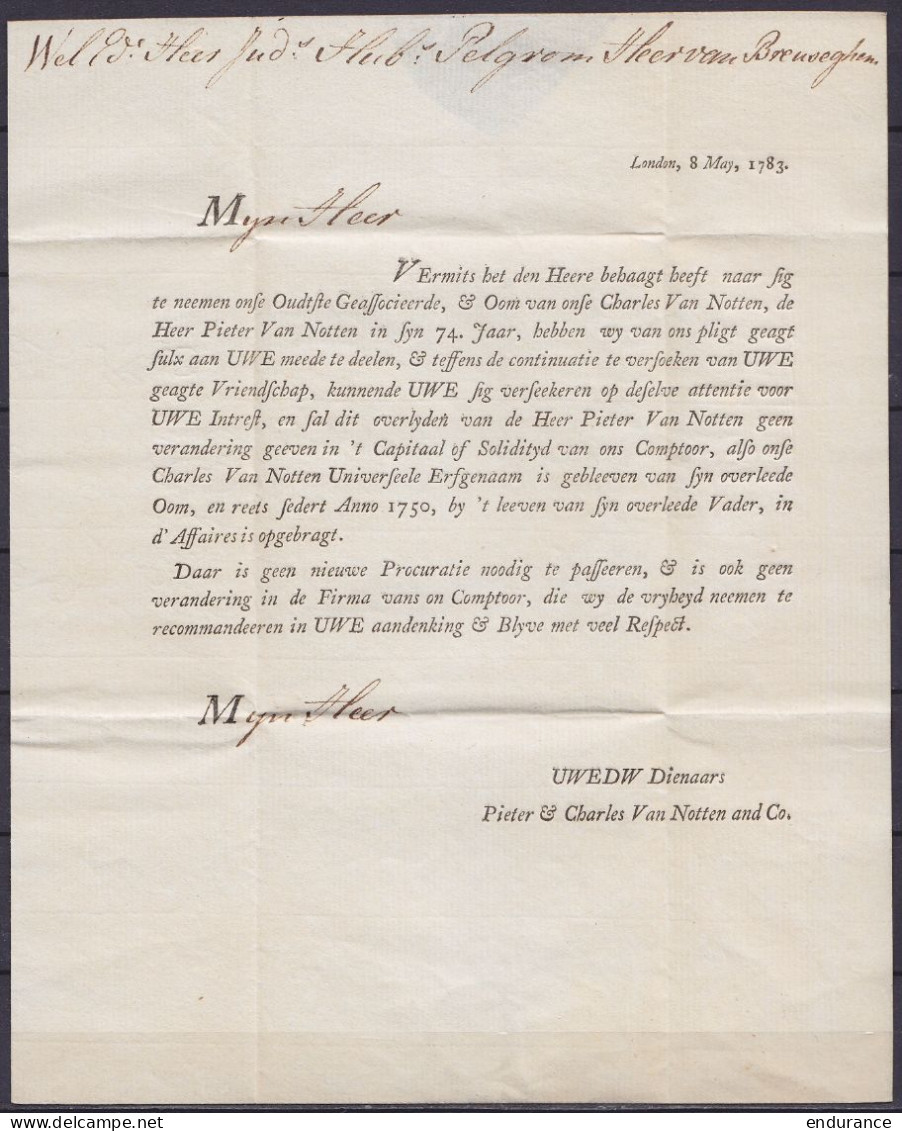 Wel Ed.r Heer Jud.s Hub.s Pelgrom Heer van Breuseghem
London, 8 May, 1783.
Myn Heer
VErmits het den Heere behaagt heeft naar ſig
te neemen onſe Oudtſte Geaſſocieerde, & Oom van onſe Charles Van Notten, de
Heer Pieter Van Notten in ſyn 74. Jaar, hebben wy van ons pligt geagt
ſulx aan UWE meede te deelen, & teffens de continuatie te verſoeken van UWE
geagte Vriendſchap, kunnende UWE ſig verſeekeren op deſelve attentie voor
UWE Intreſt, en ſal dit overlyden van de Heer Pieter Van Notten geen
verandering geeven in 't Capitaal of Solidityd van ons Comptoor, alſo onſe
Charles Van Notten Univerſeele Erfgenaam is gebleeven van ſyn overleede
Oom, en reets ſedert Anno 1750, by 't leeven van ſyn overleede Vader, in
d' Affaires is opgebragt.
Daar is geen nieuwe Procuratie noodig te paſſeeren, & is ook geen
verandering in de Firma vans on Comptoor, die wy de vryheyd neemen te
recommandeeren in UWE aandenking & Blyve met veel Reſpect.
Myn Heer
UWEDW Dienaars
Pieter & Charles Van Notten and Co.
delcampe.net
endurance